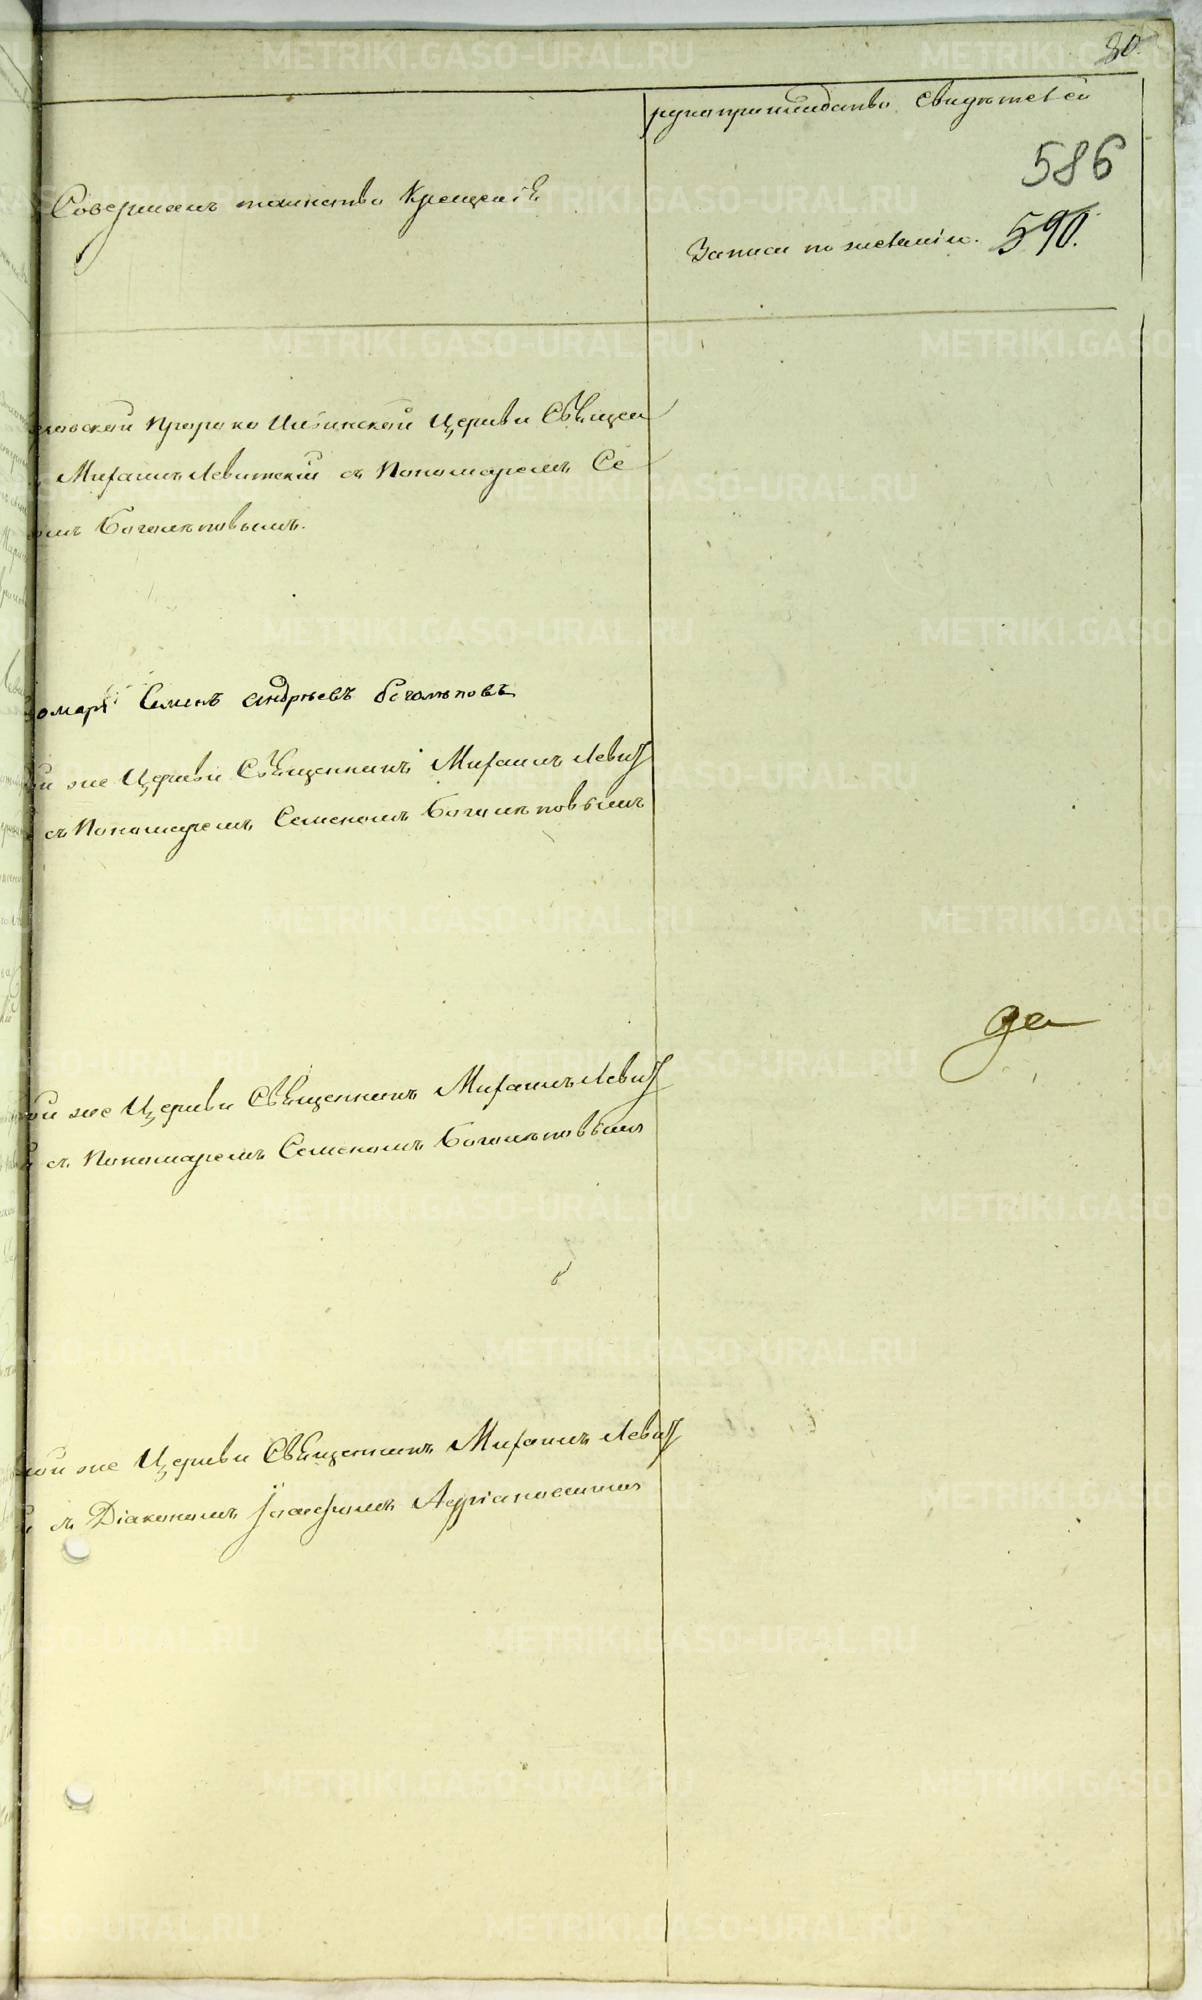 80.
рукоприкладство свидѣтелей
586
Совершалъ таинство Крещенія
Записи по желанію. 590.
Пророко Ильинской Церкви Свѣщен
Михаилъ Левитскій съ Пономаремъ Се
Боголѣповымъ.
Семенъ Андрѣевъ Боголѣповъ
же Церкви Свѣщенникъ Михаилъ Левит
съ Пономаремъ Семеномъ Боголѣповымъ
да
же Церкви Свѣщенникъ Михаилъ Левит
съ Пономаремъ Семеномъ Боголѣповымъ
же Церкви Свѣщенникъ Михаилъ Левит
съ Діакономъ
METRIKI.GASO-URAL.RU